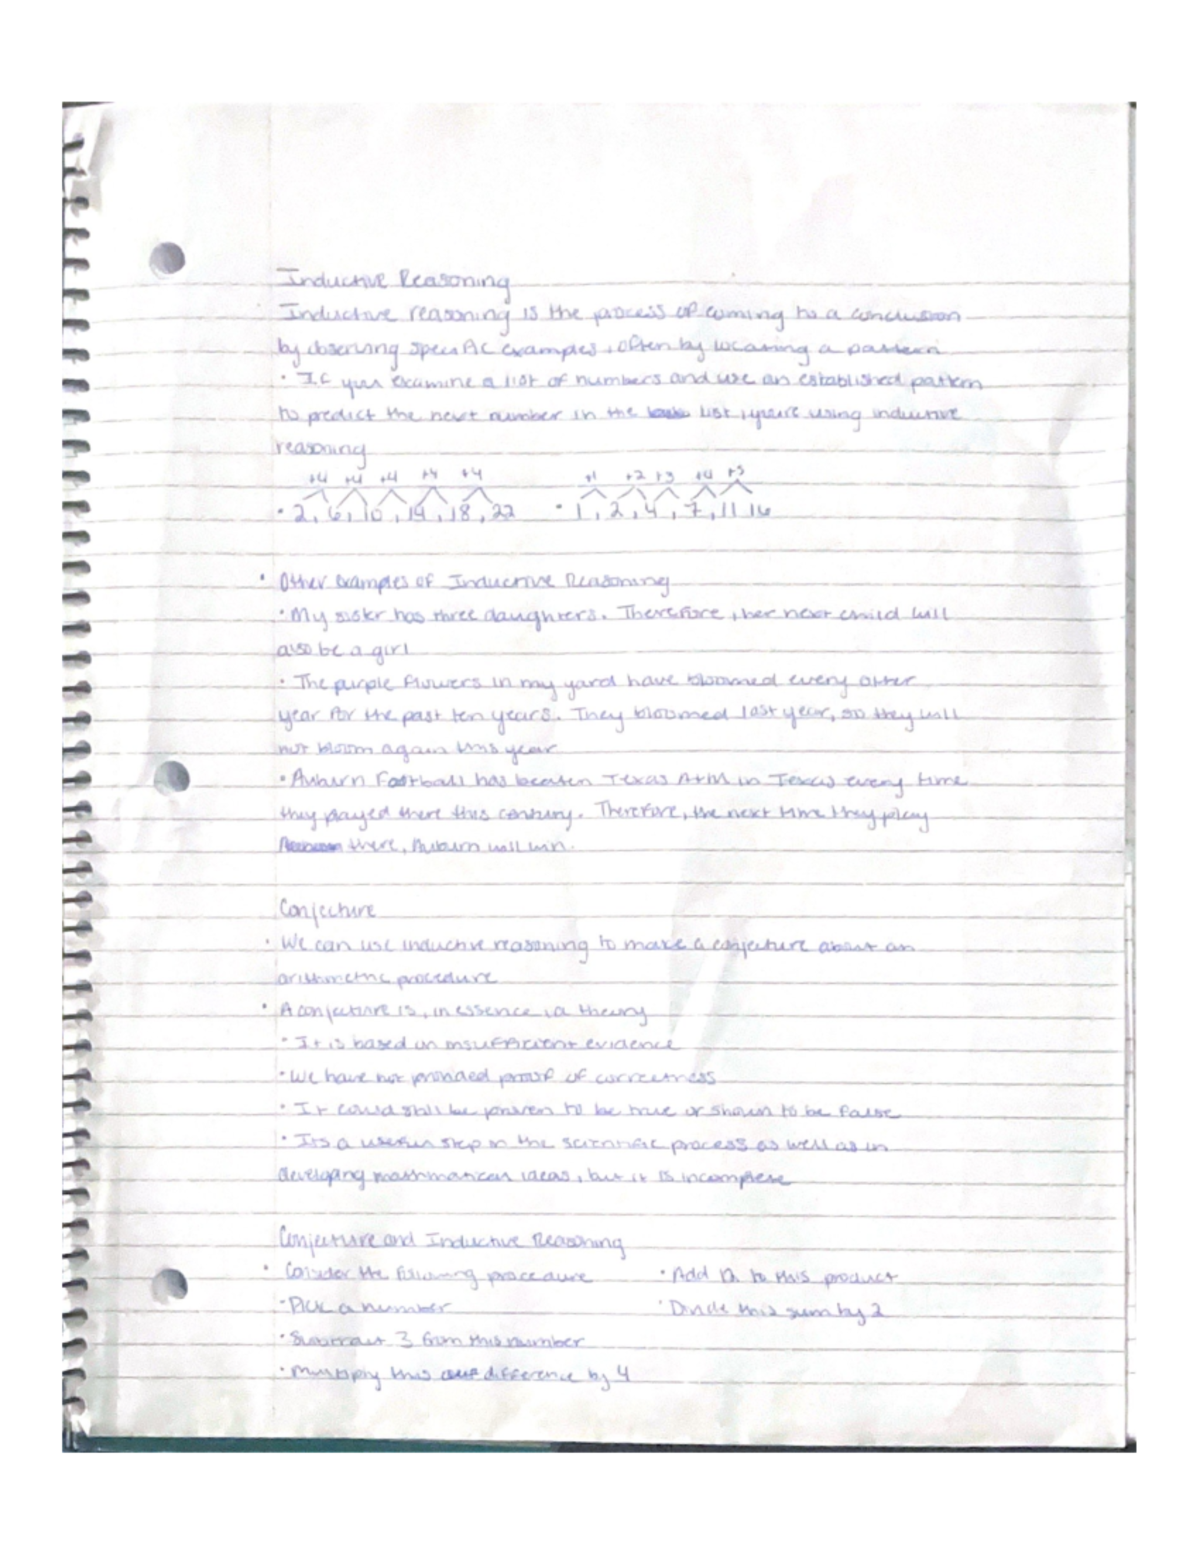 Inductive Reasoning
· Inductive reasoning is the process of coming to a conclusion
by observing specific examples, often by locating a pattern
· If you examine a list of numbers and use an established pattern
to predict the next number in the list, you're using inductive
reasoning
+4 +4 +4 +4 +4 +1 +2 +3 +4 +5
· 2, 6, 10, 14, 18, 22 · 1, 2, 4, 7, 11 16
· Other examples of Inductive Reasoning
· My sister has three daughters. Therefore, her next child will
also be a girl
· The purple flowers in my yard have bloomed every other
year for the past ten years. They bloomed last year, so they will
not bloom again this year
· Auburn Football has beaten Texas A+M in Texas every time
they played there this century. Therefore, the next time they play
there, Auburn will win.
Conjecture
· We can use inductive reasoning to make a conjecture about an
arithmetic procedure
· A conjecture is, in essence, a theory
· It is based on insufficient evidence
· We have not provided proof of correctness
· It could still be proven to be true or shown to be false
· Its a useful step in the scientific process as well as in
developing mathmatical ideas, but it is incomplete
Conjecture and Inductive Reasoning
· Consider the following procedure · Add 12 to this product
· Pick a number · Divide this sum by 2
· Subtract 3 from this number
· Multiply this difference by 4